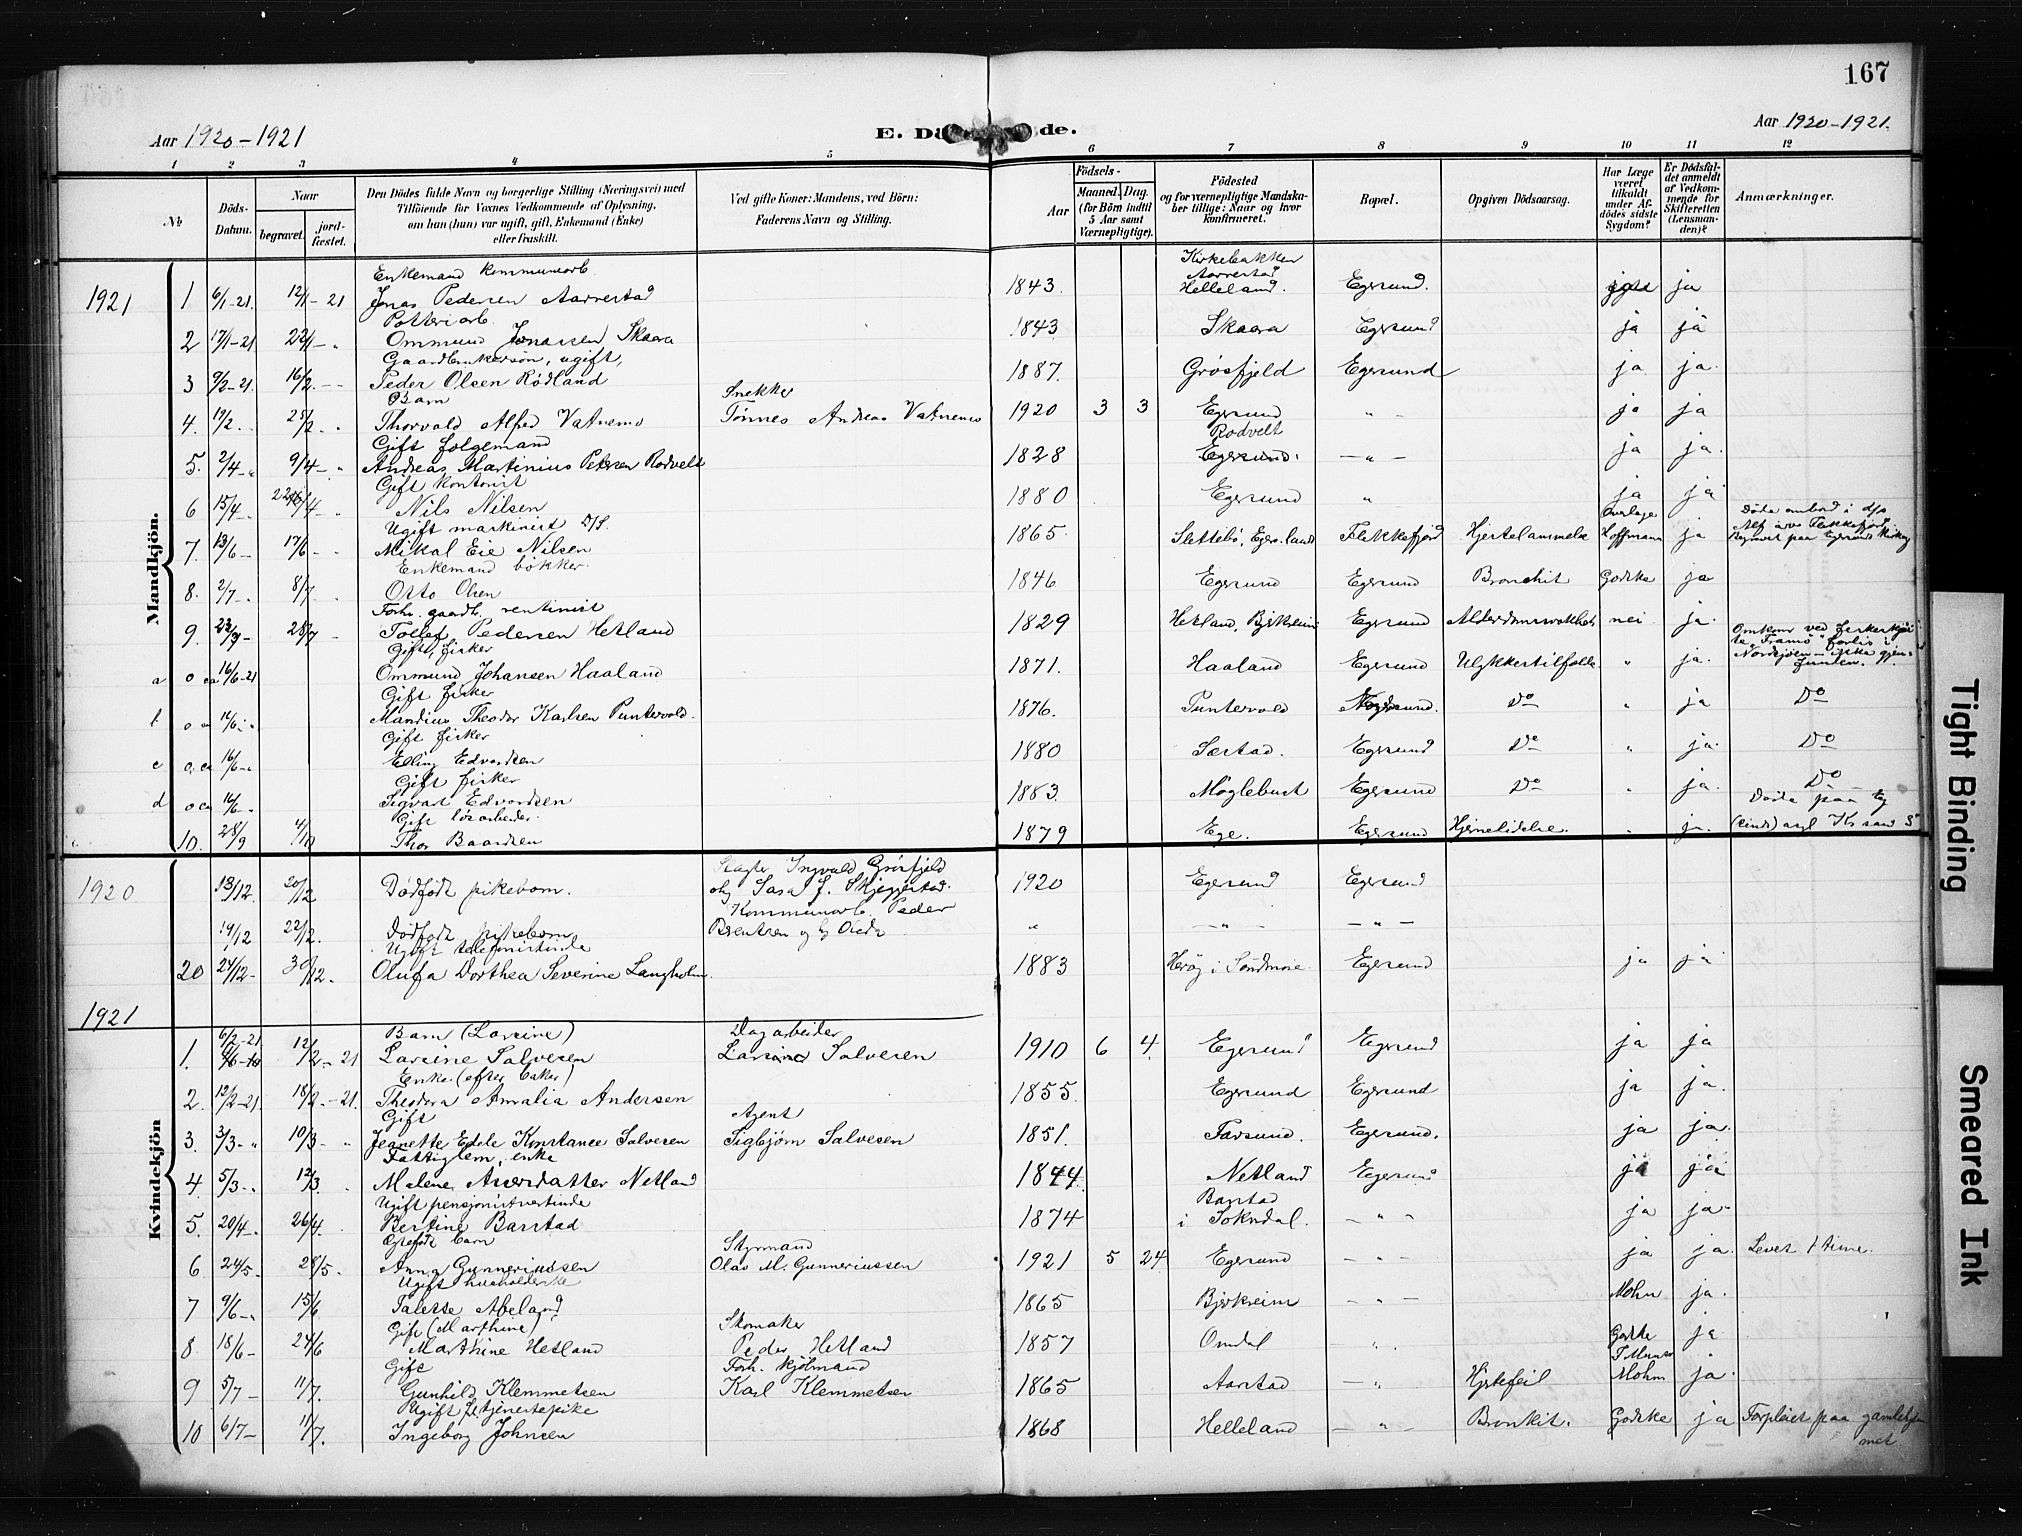 167
Aar 1920-1921
E. Dö de.
Aar 1920-1921.
1 2 3 4 5 6 7 8 9 10 11 12
No
Döds-Datum.
Naar
begravet.
jord-fæstet.
Den Dödes fulde Navn og borgerlige Stilling (Næringsvei) med
Tilföiende for Voxnes Vedkommende af Oplysning,
om han (hun) var ugift, gift, Enkemand (Enke)
eller fraskilt.
Ved gifte Koner: Mandens, ved Börn:
Faderens Navn og Stilling.
Födsels-
Aar
Maaned. Dag.
(for Börn indtil
5 Aar samt
Værnepligtige).
Födested
og for værnepligtige Mandska-
ber tillige: Naar og hvor
konfirmeret.
Bopæl.
Opgiven Dödsaarsag.
Har Læge
været
tilkaldt
under Af-
dödes sidste
Sygdom?
Er Dödsfal-
det anmeldt
af Vedkom-
mende for
Skifteretten
(Lensman-
den)?
Anmærkninger.
Mandkjön.
1921
Enkemand kommunearb.
1 6/1-21 12/1-21 Jonas Pedersen Aarrestad 1843. Kirkebakken Aarrestad Helleland. Egersund. ja
Potteriarb.
2 17/1-21 22/1 - " Ommund Jonassen Skaara 1843 Skaara Egersund ja ja
Gaardbrukersøn, ugift,
3 9/2-21. 16/2 - - Peder Olsen Rødland 1887. Grøsfjeld Egersund ja ja.
Barn Snekker
4. 19/2 25/2 " Thorvald Alfred Vatnemo Tønnes Andreas Vatnemo 1920 3 3 Egersund " - ja ja
Gift folgemand
5. 2/4 - " 9/4 - " Andreas Martinius Petersen Rodvelt 1828 Rodvelt Egersund. - " - ja ja.
Gift kontorist
6 15/4 - Nils Nilsen 1880 Egersund " ja ja
Ugift maskinist D/S.
7. 13/6 - 17/6 - Mikal Eie Nilsen 1865. Slettebø, Egers. lands Flekkefjord Hjertelammelse Overlæge Hoffmann ja Døde ombord i d/s Alf paa Flekkefjord Begravet paa Egersunds
Enkemand bøkker.
8. 2/7 - 8/7 Otto Olsen 1846 Egersund Egersund Bronchit Godske ja
Forh. gaardb. rentinist
9. 28/7 - Tollef Pedersen Hetland 1829 Hetland, Bjerkreim Egersund nei ja.
Gift, fisker
a o ca 16/6-21 Ommund Johansen Haaland 1871. Haaland Egersund Ulykkestilfælde " ja. Omkom ved fiskerskøi ta "Framo" forlis i Nordsjøen - ikke gjen- funden.
Gift fisker
o 16/6 - Mandius Theodor Karlsen Puntervold. 1876. Puntervold Egersund. Do " ja Do
Gift fisker
c o. ca 16/6 - Elling Edvardsen 1880 Sæstad. Egersund Do " ja. Do
Gift fisker
d o ca 16/6 - Sigvart Edvardsen 1883. Møglebust Egersund Do " ja. Do
Gift løsarbeider.
10. 28/9 4/10 Thor Baardsen 1879 Ege. Egersund Hjernelidelse. " ja. Døde paa
Kvindekjön
1920
13/12. 20/12 Dødfødt pikebarn. Slagter Ingvald Grøsfjeld og J. Skjeggestad. 1920 Egersund Egersund
14/12 22/12. Dødfødt pikebarn Kommunearb. Peder Berntsen " - " - - " -
Ugift telefonistinde
20 24/12 - 30/12. Olufa Dorthea Severine Langholm. 1883 Herøy i Søndmøre. Egersund ja ja
1921
Barn (Larsine) Dagarbeider
1. 6/2-21 12/2-21 Larsine Salvesen Salvesen 1910 6 4. Egersund Egersund ja ja
Enke (efter baker)
2. 12/2-21. 18/2-21. Theodora Amalia Andersen 1855. Egersund Egersund ja ja.
Gift Agent
3. 3/3 - " 10/3 - " Jeanette Edele Konstance Salvesen Sigbjørn Salvesen 1851. Farsund. Egersund. ja ja.
Fattiglem, enke
4. 5/3 - " 12/3. Malene Netland 1844. Netland Egersund ja ja
Ugift pensjonistvertinde
5. 20/4 - 26/4. Bertine Barstad 1874 Barstad i Sokndal. - " - ja ja.
Ægtefødt barn Styrmand
6 24/5 - 28/5. Anna Gunneriussen Olav M. Gunneriussen 1921 5 24 Egersund - " - ja ja. Levet 1 time.
Ugift husholderske
7 9/6 - 15/6 Talette Abeland 1865 Bjerkreim - " - Mohn ja.
Gift (Marthine) Skomaker
8. 18/6 - 24/6 Marthine Hetland Peder Hetland 1857 Omdal - " . Godske ja
Gift Forh. kjølmand
9 5/7 - 11/7. Gunhild Klemmetsen Karl Klemmetsen 1865 Aarstad - " Hjertefeil Mohn ja.
Ugift tjenestepike
10 6/7 - 11/7. Ingeborg Johnsen 1868 Helleland - " - Bronkit. Godske ja Forpleiet paa gamlehjem met
Tight Binding
Smeared Ink